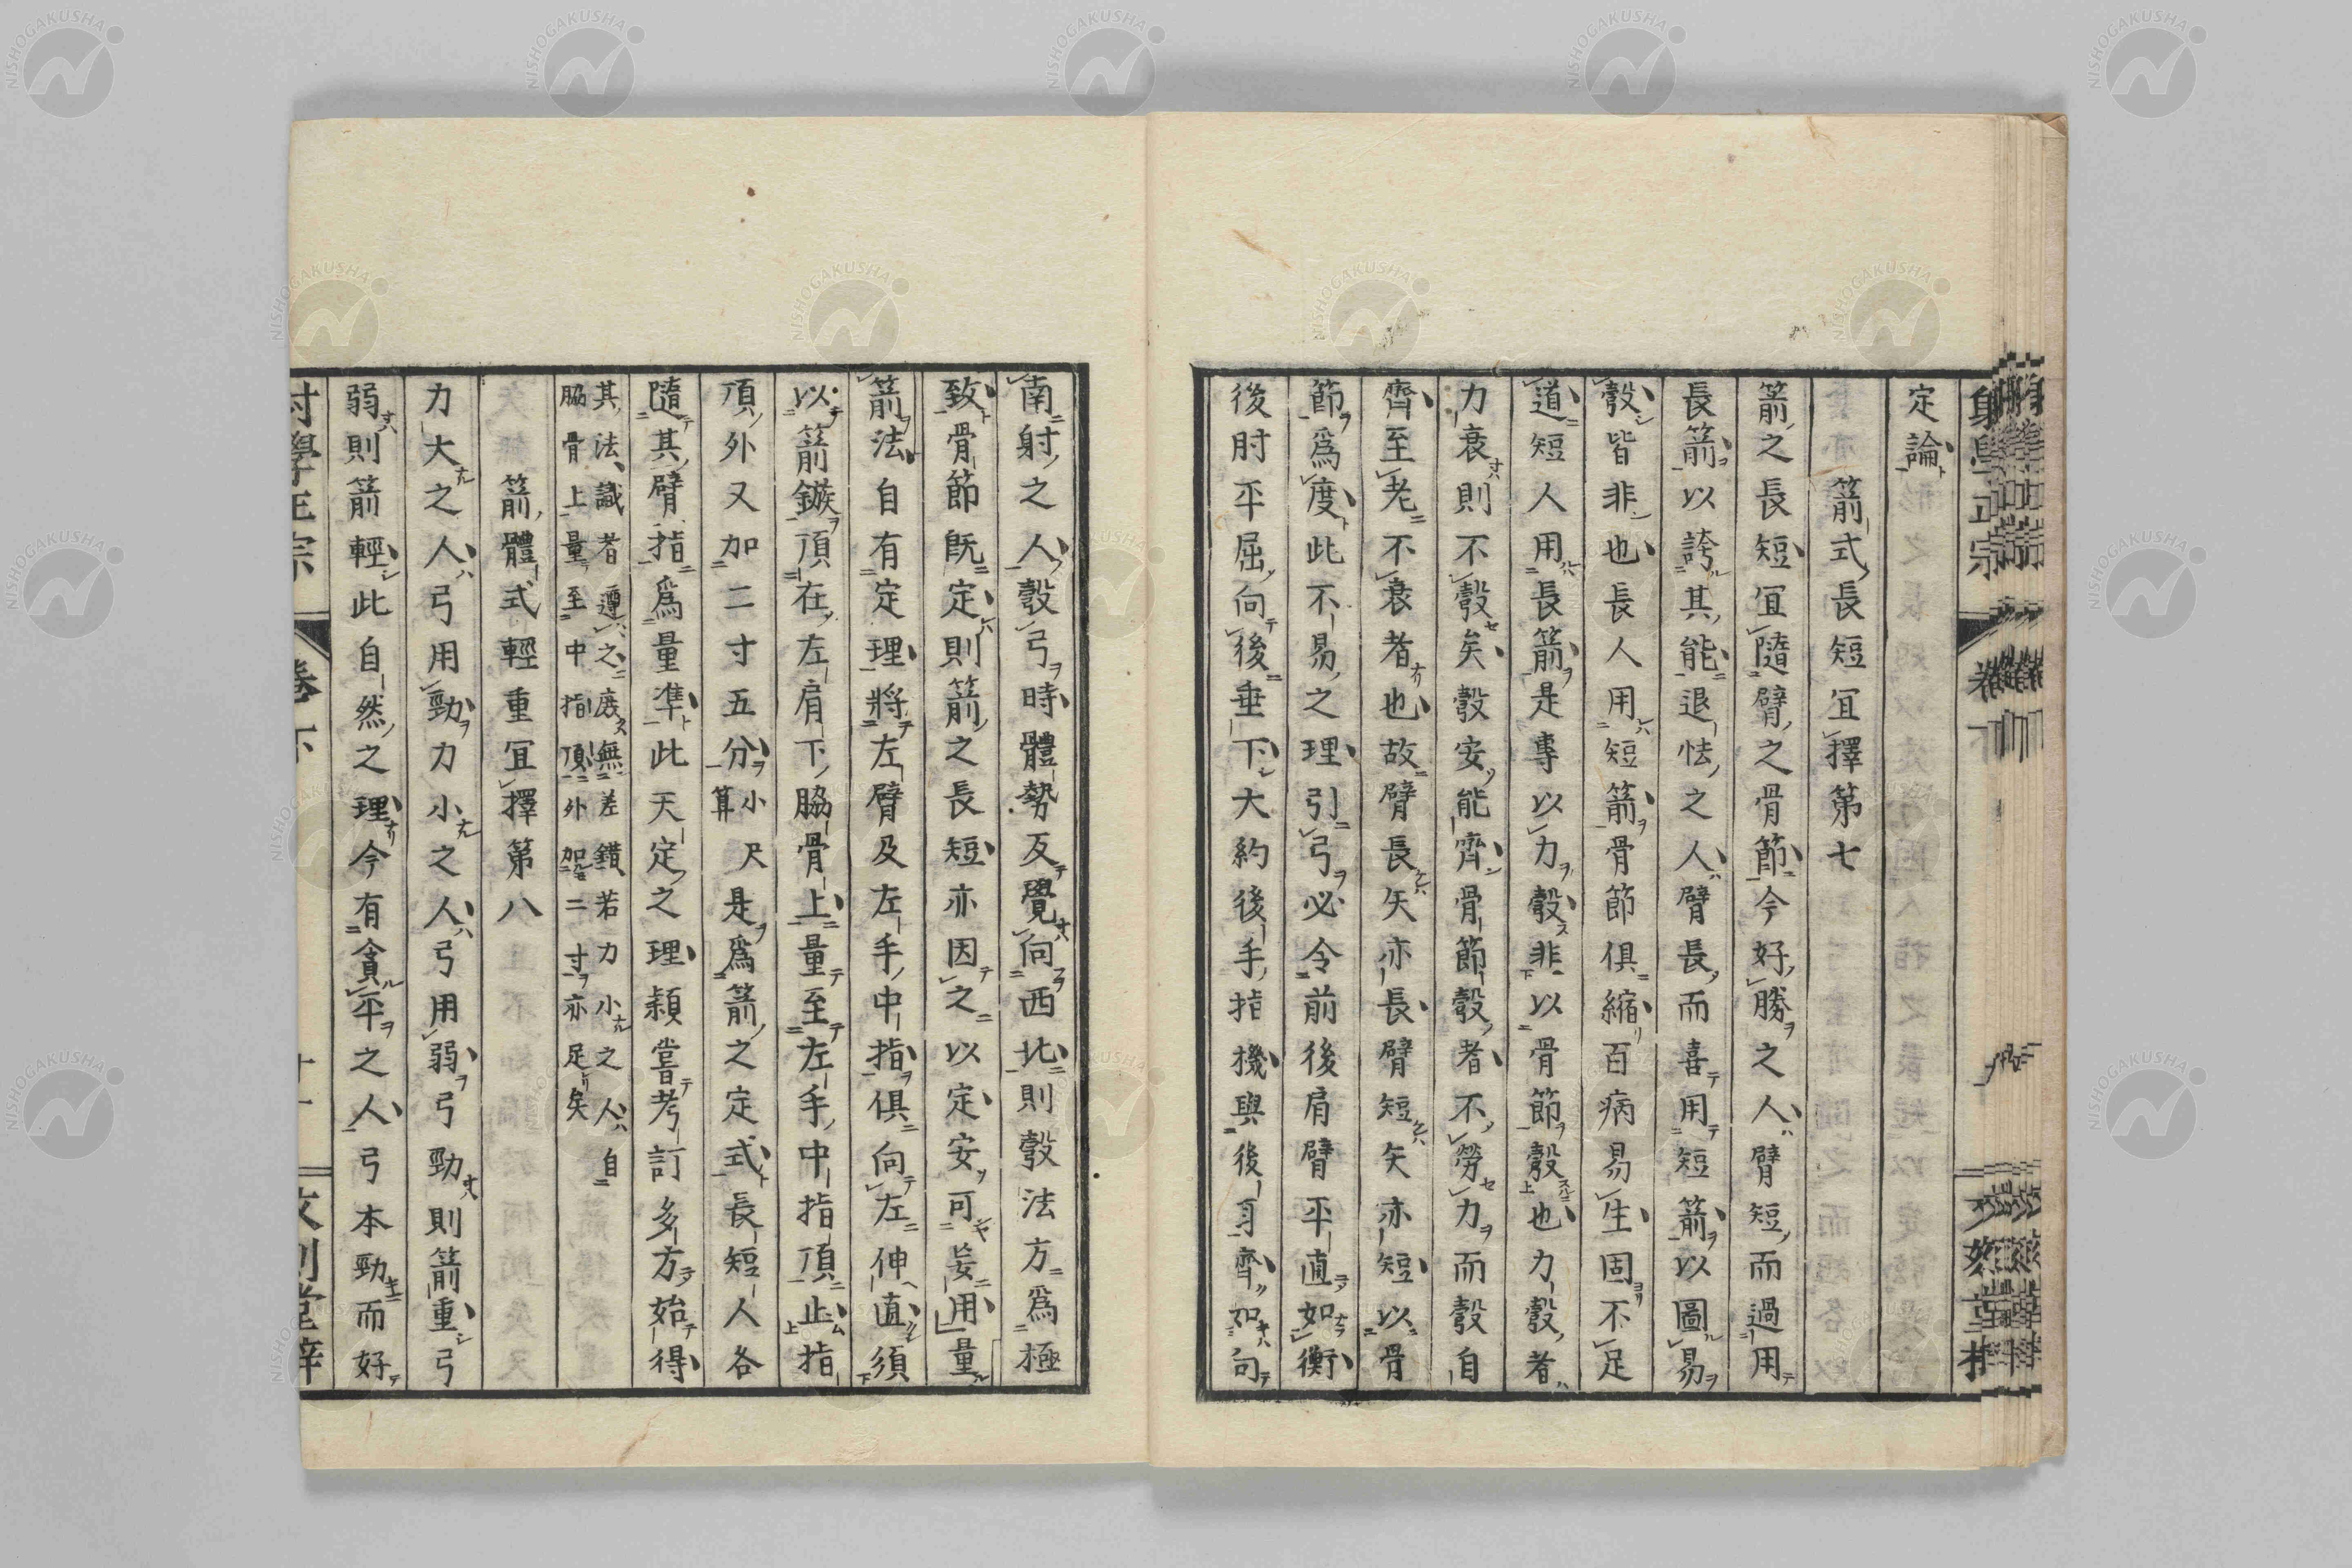 定論
箭式長短宜擇第七
箭之長短宜隨臂之骨節今好勝之人臂短而過用
長箭以誇其能退怯之人臂長而喜用短箭以圖易
彀皆非也長人用短箭骨節俱縮百病易生固不足
道短人用長箭是專以力彀非以骨節彀也力彀者
力衰則不彀矣彀安能齊骨節彀者不勞力而彀自
齊至老不衰者也故臂長矢亦長臂短矢亦短以骨
節爲度此不易之理引弓必令前後肩臂平直如衡
後肘平屈向後垂下大約後手指機與後肩齊如向
南射之人彀弓時體勢反覺向西北則彀法方爲極
致骨節既定則箭之長短亦因之以定安可妄用量
箭法自有定理將左臂及左手中指俱向左伸直須
以箭鏃頂在左肩下脇骨上量至左手中指頂止指
頂外又加二寸五分小尺算是爲箭之定式長短人各
隨其臂指爲量準此天定之理穎嘗考訂多方始得
其法識者遵之庶無差錯若力小之人自
脇骨上量至中指頂外加二寸亦足矣
箭體式輕重宜擇第八
力大之人弓用勁力小之人弓用弱弓勁則箭重弓
弱則箭輕此自然之理今有貪平之人弓本勁而好
射學正宗 卷下
NISHOGAKUSHA